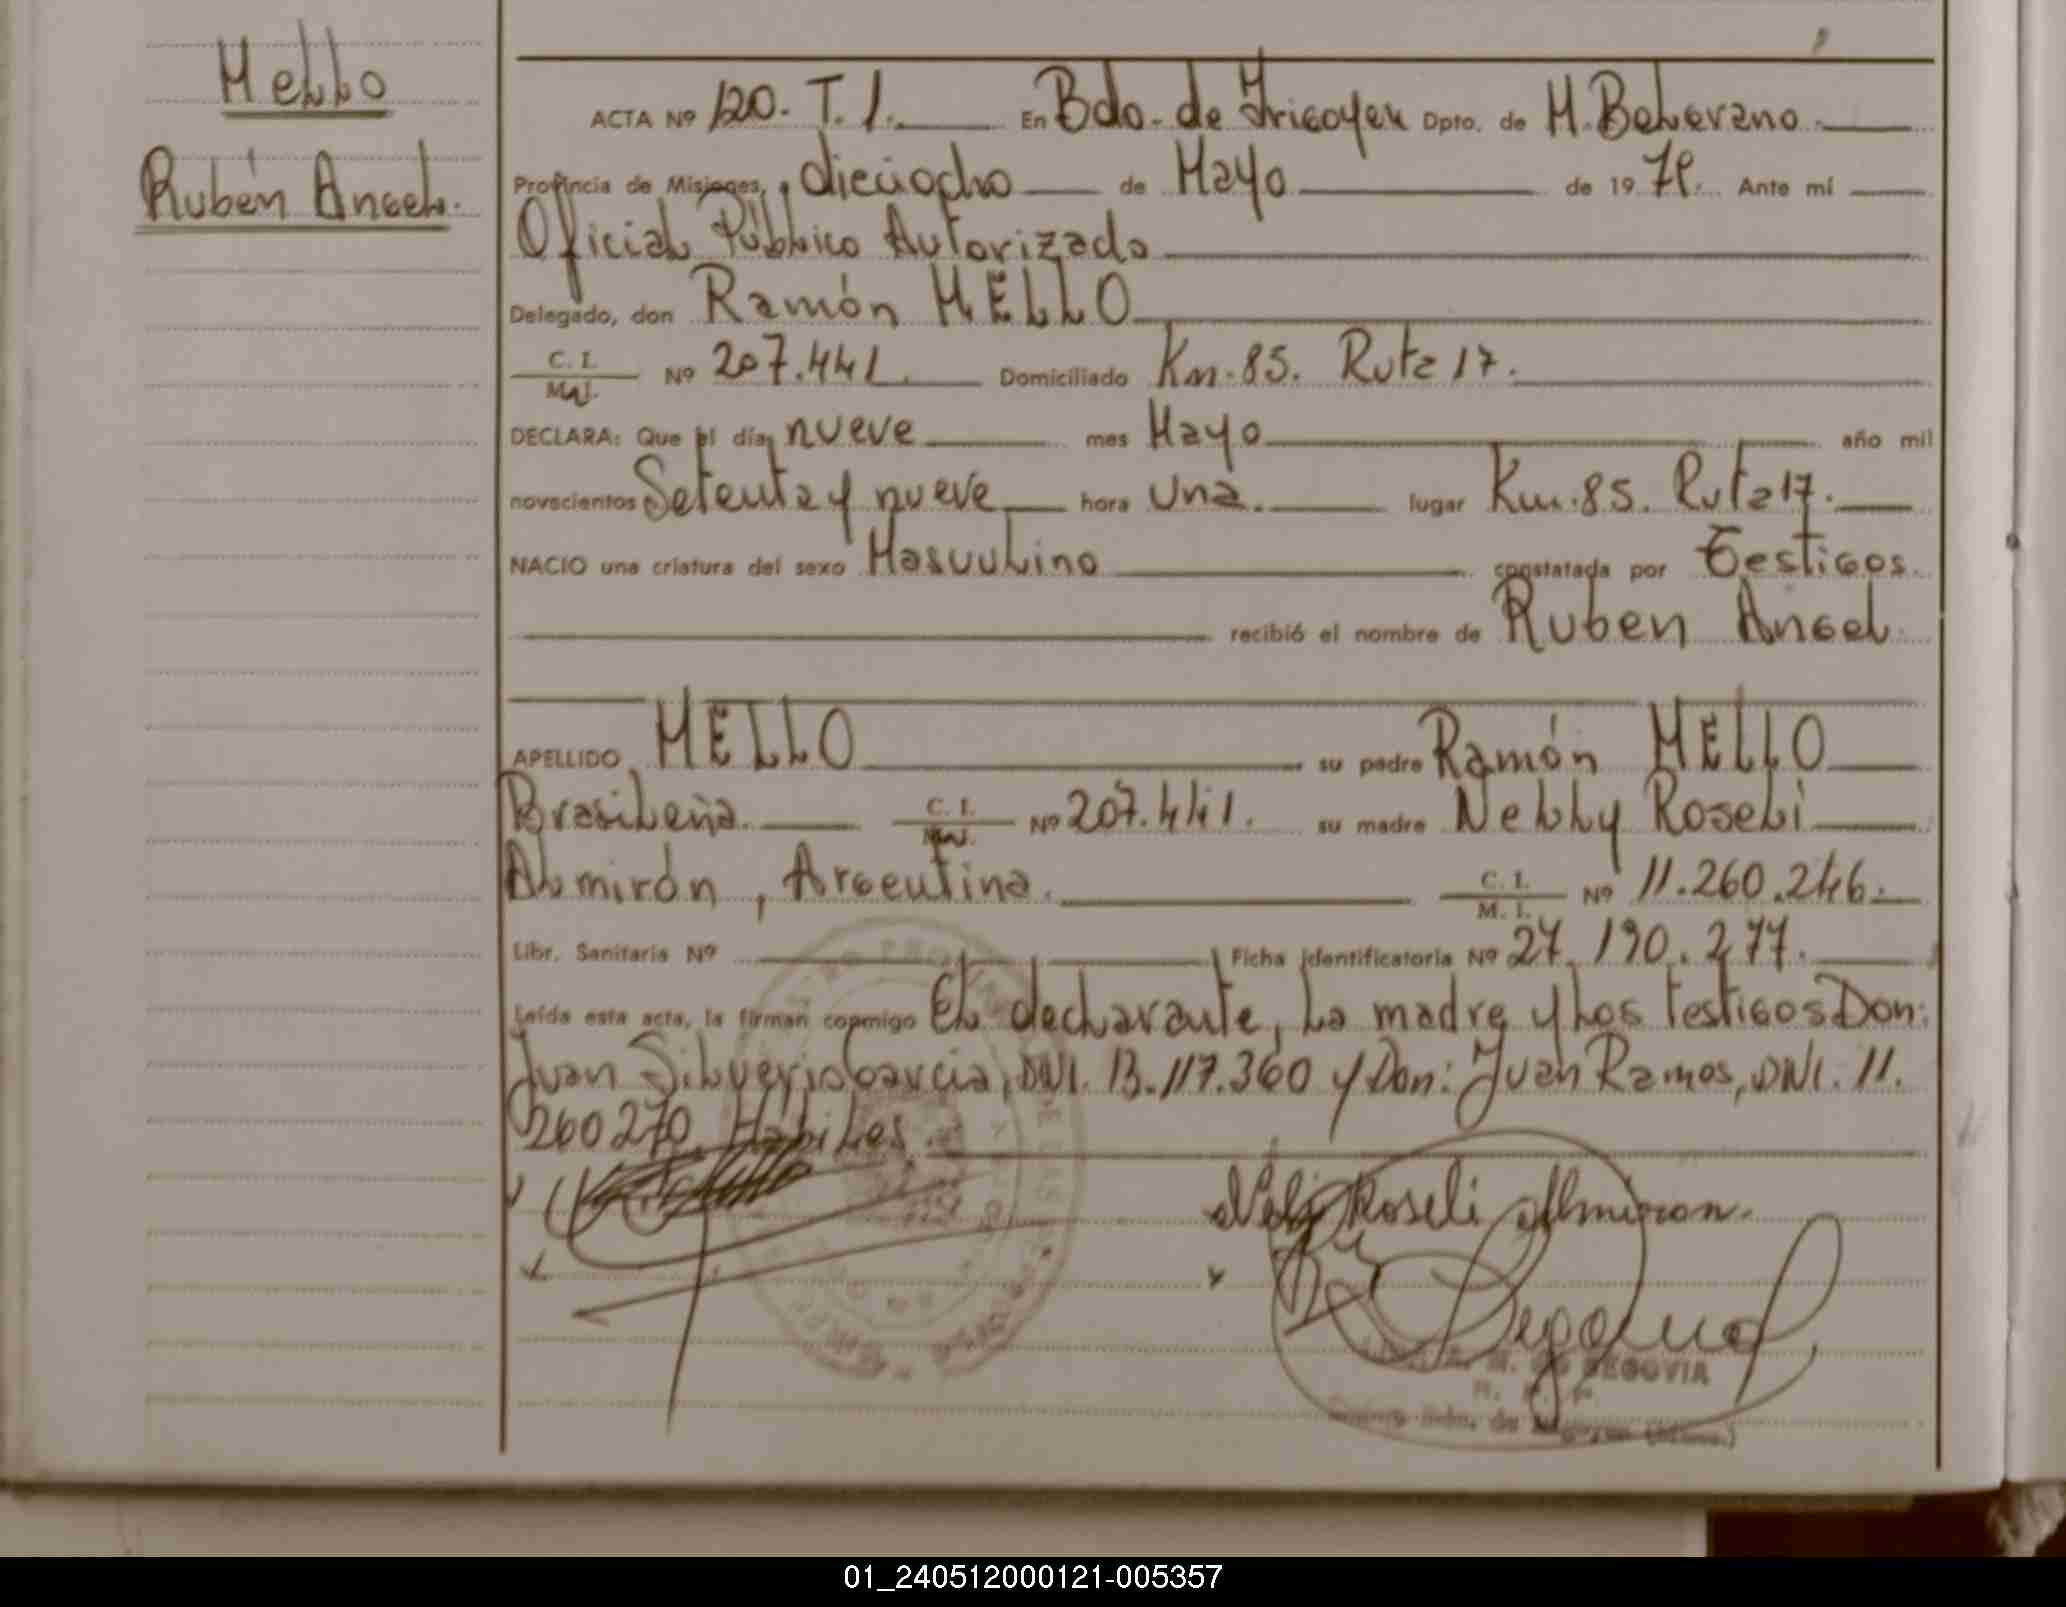 Mello
Rubén Angel.
ACTA Nº 120. T. 1. En Bdo. de Irigoyen Dpto. de M. Belgrano.
Provincia de Misiones, dieciocho de Mayo de 1979. Ante mí
Oficial Público Autorizado
Delegado, don Ramón MELLO
C. I. Nº 207.441. Domiciliado Km. 85. Ruta 17.
DECLARA: Que el día nueve mes Mayo año mil
novecientos Setenta y nueve hora una. lugar Km. 85. Ruta 17.
NACIO una criatura del sexo Masculino constatada por Testigos.
recibió el nombre de Ruben Angel
APELLIDO MELLO su padre Ramón MELLO
Brasileña. C. I. Nº 207.441. su madre Nelly Roseli
Almirón, Argentina. C. I. M. I. Nº 11.260.246.
Libr. Sanitaria Nº Ficha identificatoria Nº 27.190.277.
Leída esta acta, la firman conmigo El declarante, la madre y los testigos Don:
Juan Silverio Garcia, DNI. 13.117.360 y Don: Juan Ramos, DNI. 11.
260270. Hábiles.
Roseli Almiron.
SEGOVIA
01_240512000121-005357